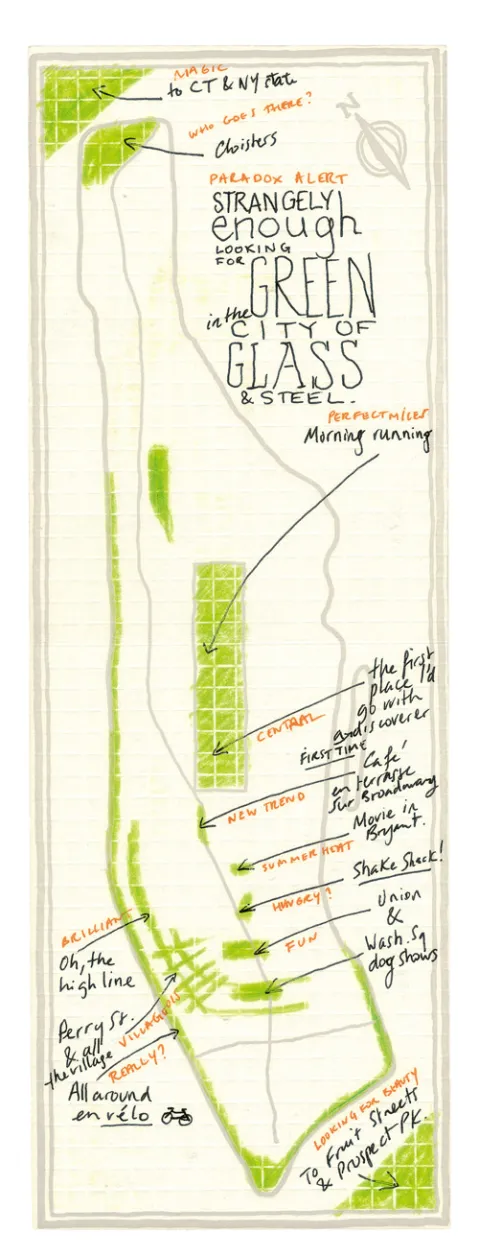 MAGIC
to CT & NY state
WHO GOES THERE?
Cloisters
N
PARADOX ALERT
STRANGELY
enough
LOOKING
FOR
GREEN
in the
CITY OF
GLASS
& STEEL.
PERFECT MILES
Morning running
the first
place I'd
go with
a discoverer
CENTRAL
FIRST TIME
Café
en terrasse
sur Broadway
NEW TREND
Movie in
Bryant.
SUMMER HEAT
Shake Shack!
HUNGRY?
Union
&
Wash. Sq
dog shows
FUN
BRILLIANT
Oh, the
high line
Perry St.
& all
the village
VILLAGEOIS
REALLY?
All around
en vélo
LOOKING FOR BEAUTY
To Fruit Streets
& Prospect PK.